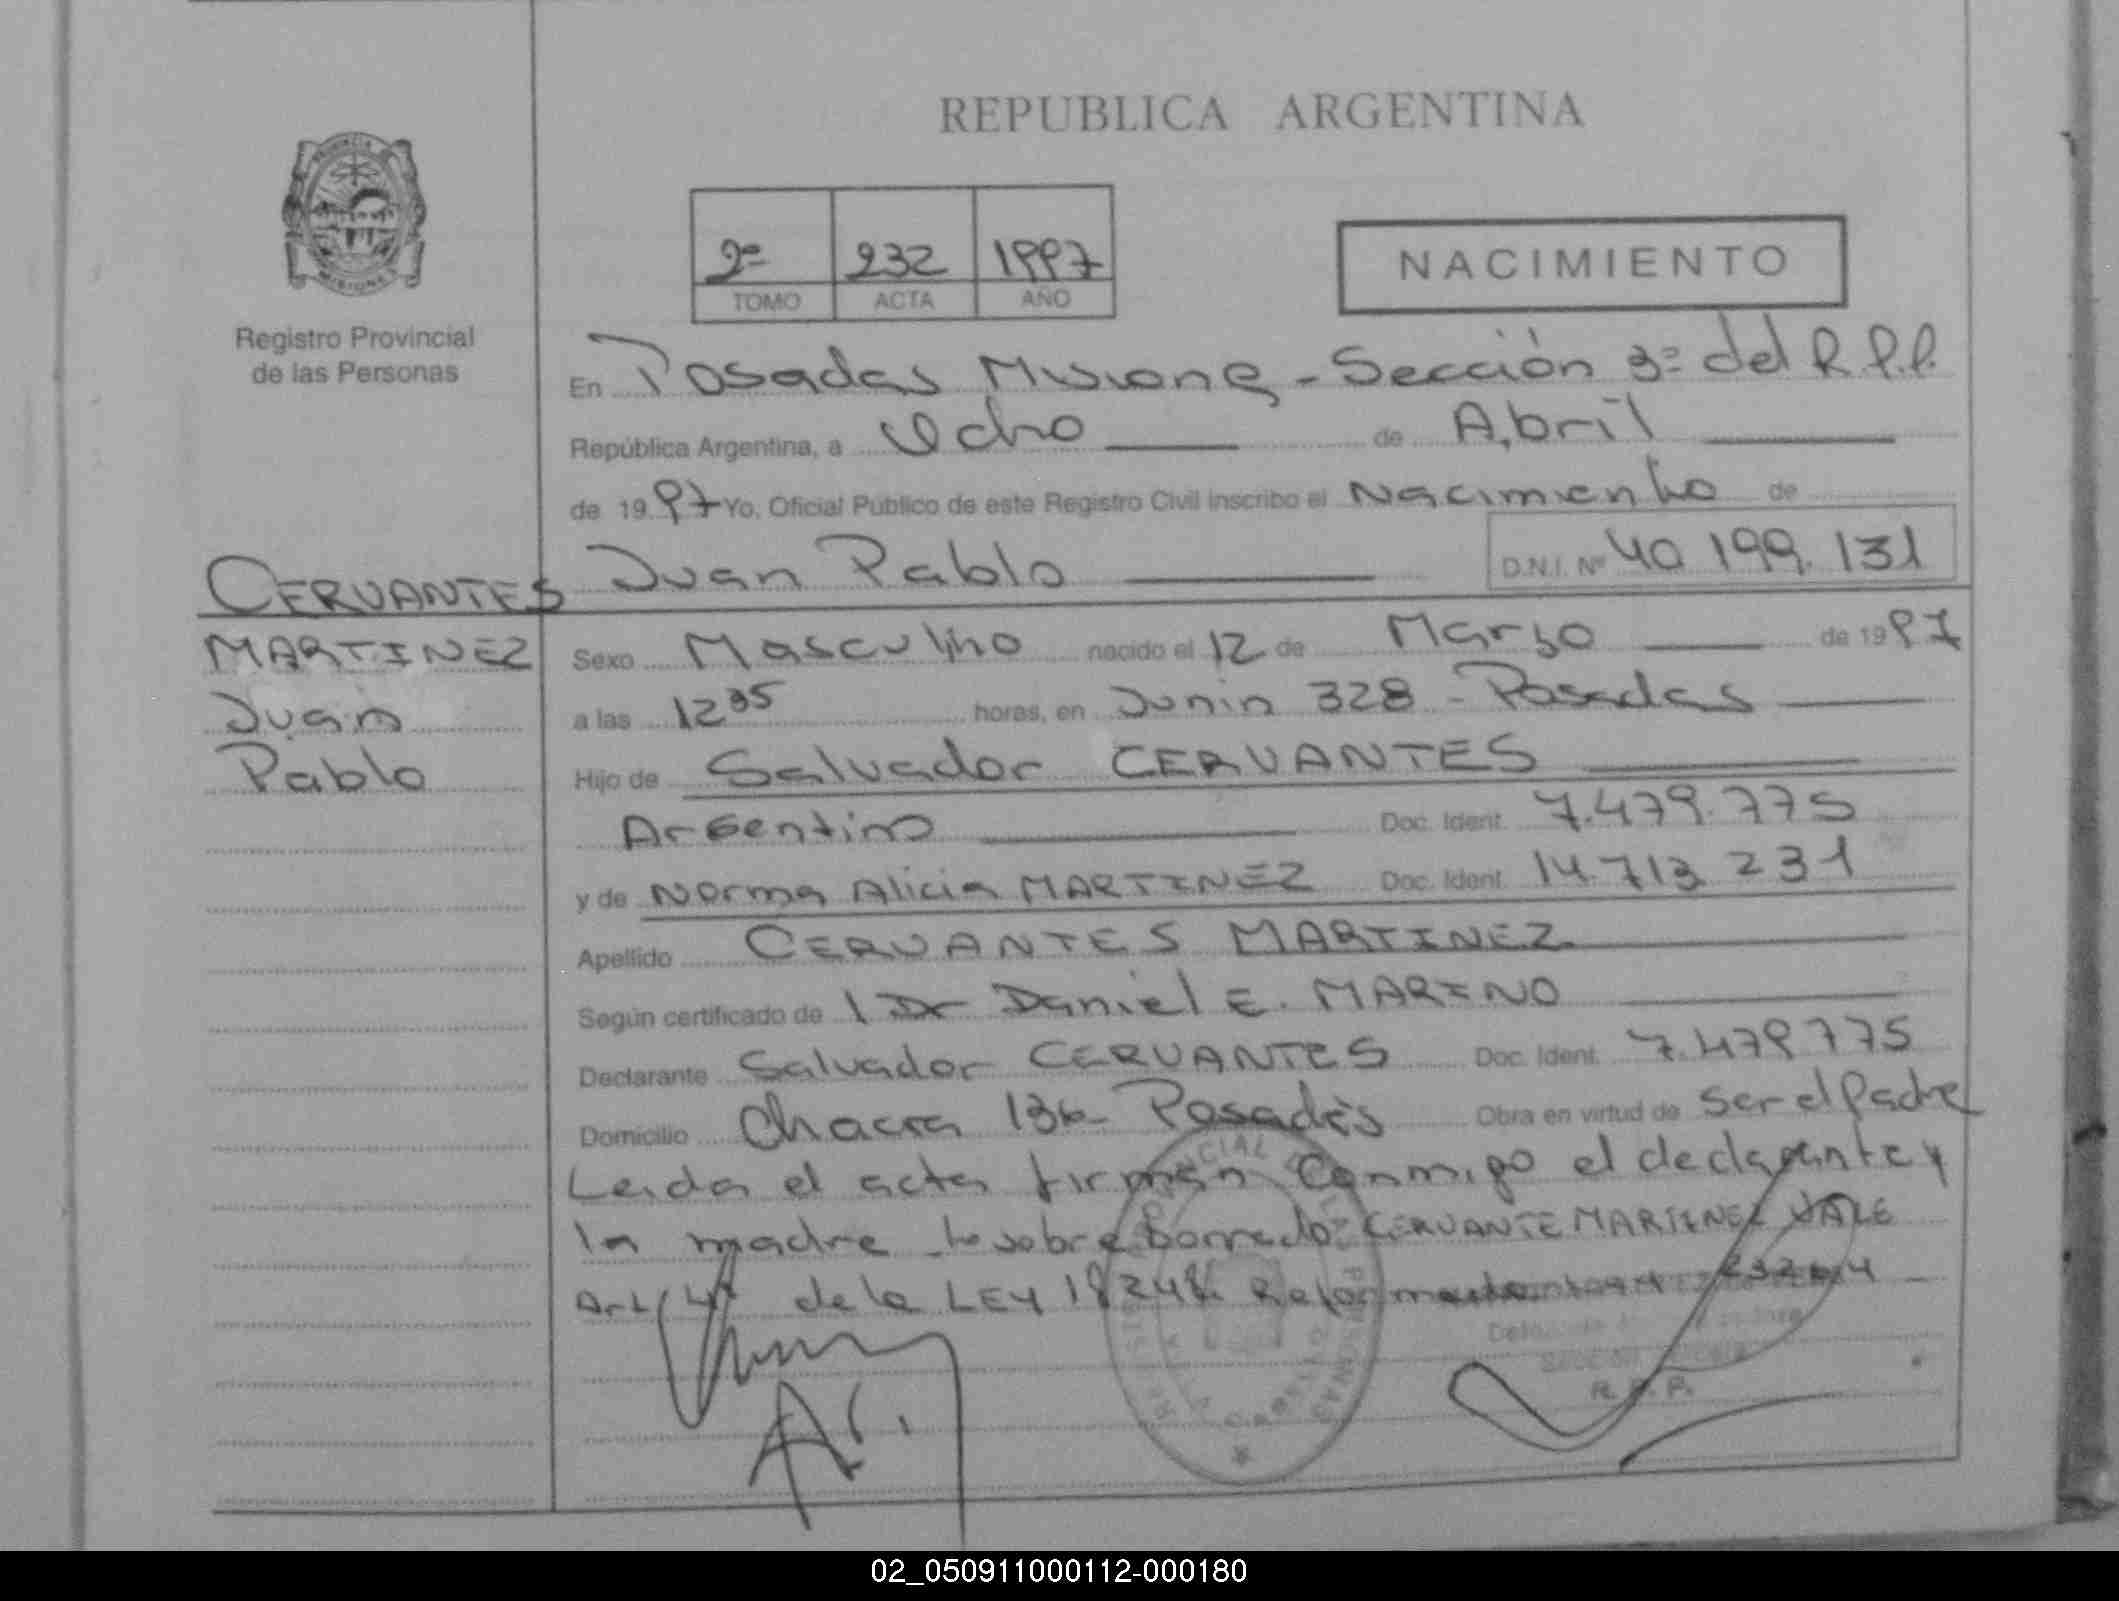 REPUBLICA ARGENTINA
PROVINCIA
MISIONES
Registro Provincial
de las Personas
2º 232 1997
TOMO ACTA AÑO
NACIMIENTO
En Posadas Misiones - Sección 3º del R.P.P.
República Argentina, a Ocho de Abril
de 1997 Yo, Oficial Público de este Registro Civil inscribo el Nacimiento de
Juan Pablo D.N.I. Nº 40.199.131
CERVANTES
MARTINEZ
Juan
Pablo
Sexo Masculino nacido el 12 de Marzo de 1997
a las 12 35 horas, en Junin 328 - Posadas
Hijo de Salvador CERVANTES
Argentino Doc. Ident. 7.479.775
y de Norma Alicia MARTINEZ Doc. Ident. 14.713.231
Apellido CERVANTES MARTINEZ
Según certificado de l Dr Daniel E. MARINO
Declarante Salvador CERVANTES Doc. Ident. 7.479775
Domicilio Chacra 136- Posadas Obra en virtud de ser el Padre
Leida el acta firman Conmigo el declarante y
la madre lo sobre borrado: CERVANTE MARTINEZ VALE
Art 4º de la LEY 18248
R.P.P.
02_050911000112-000180